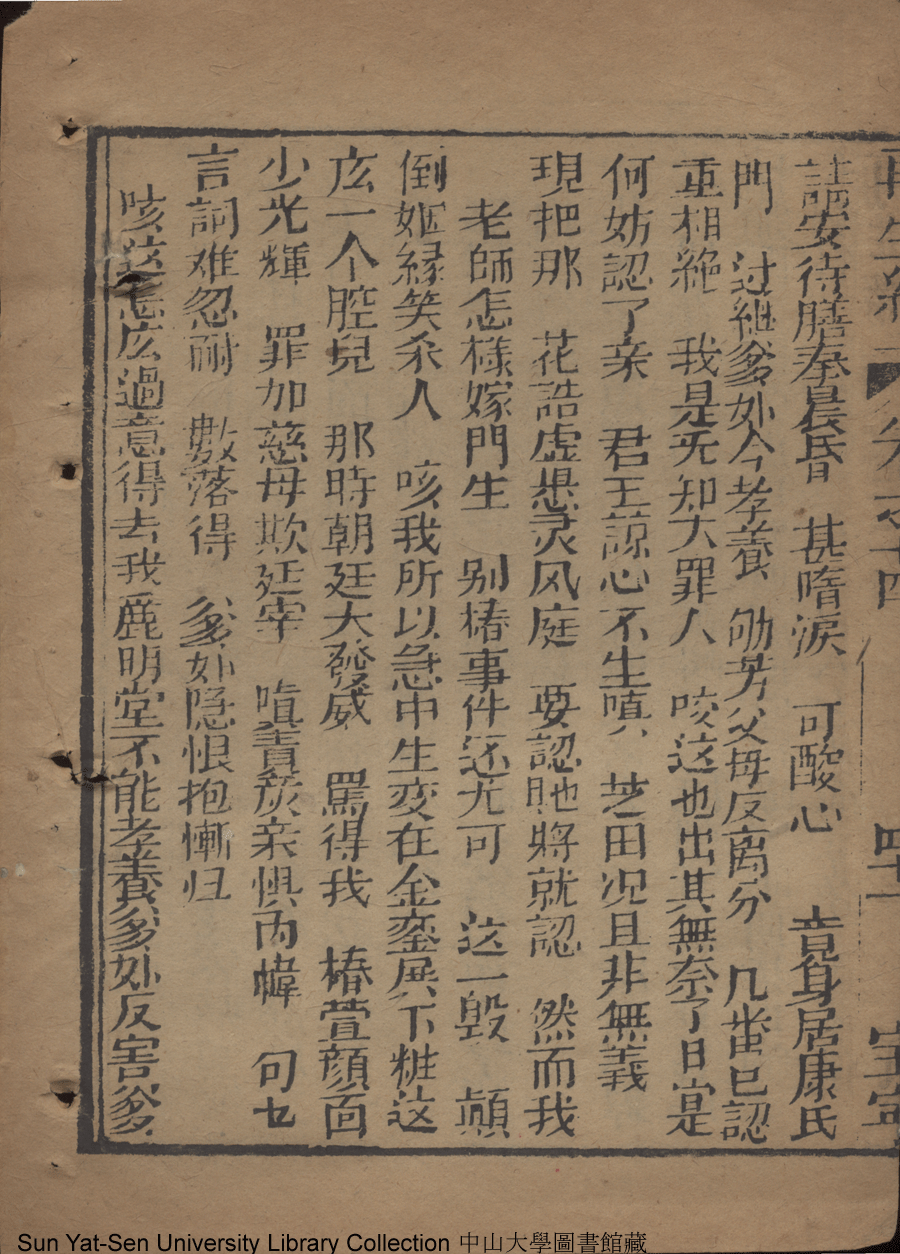 再生緣 卷之十四 四十一 宝宁
請安待膳奉晨昏 甚墮淚 可酸心 竟身居康氏
門 过継爹妳今孝養 劬劳父母反离分 几畨已認
重相絶 我是无知大罪人 咳这也出其無奈了日當是
何妨認了亲 君王諒心不生嗔 芝田况且非無義
現把那 花誥虚懸灵风庭 要認时將就認 然而我
老師怎樣嫁門生 别樁事件还尤可 这一毁 顛
倒姻縁笑杀人 咳我所以急中生变在金鑾展下粧这
庅一个腔兒 那時朝廷大發威 罵得我 椿萱顔面
少光輝 罪加慈母欺廷宰 嗔責炭亲惧丙幃 句乜
言詞难忍耐 數落得 爹妳隐恨抱慚归
咳这怎庅過意得去我鹿明堂不能孝養爹妳反害爹
Sun Yat-Sen University Library Collection 中山大學圖書館藏